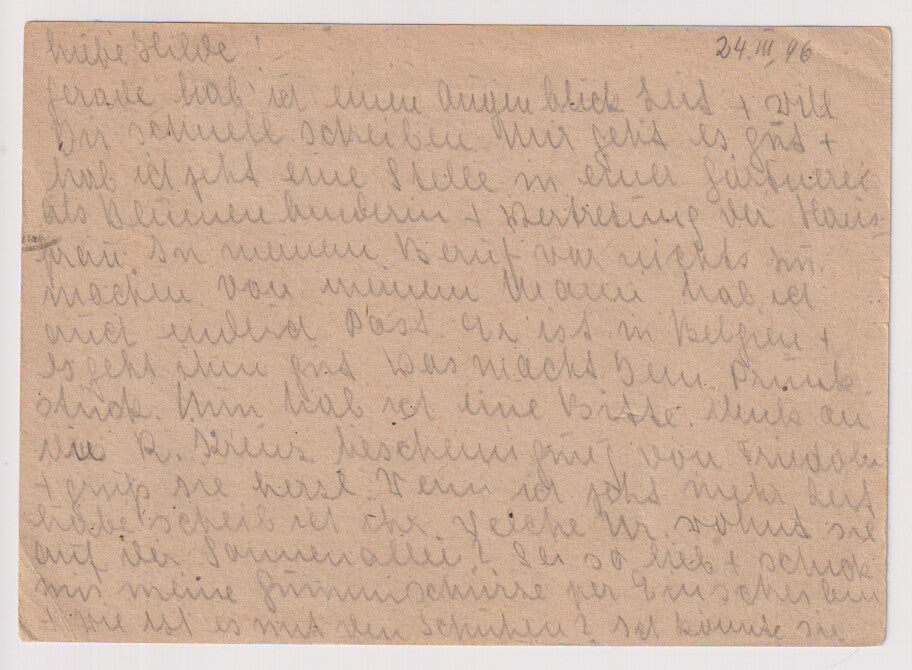 Liebe Hilde! 24.III.46
Gerade hab' ich einen Augenblick Zeit + will
Dir schnell schreiben. Mir geht es gut +
hab ich jetzt eine Stelle in einer Gärtnerei
als Blumenbinderin + Vertretung der Haus-
frau. In meinem Beruf war nichts zu
machen. Von meinem Mann hab ich
auch endlich Post. Er ist in Belgien +
es geht ihm gut. Was macht Dein Prunk
stück. Nun hab ich eine Bitte. Denk an
die R. Kreuz bescheinigung von Fridolin
+ grüß sie herzl. Wenn ich jetzt mehr Zeit
habe scheib ich ihr. Welche Nr. wohnt sie
auf der Sonnenallee? Sei so lieb + schick
mir meine Gummischürze per Einschreiben
+ wie ist es mit den Schuhen? Ich könnte sie